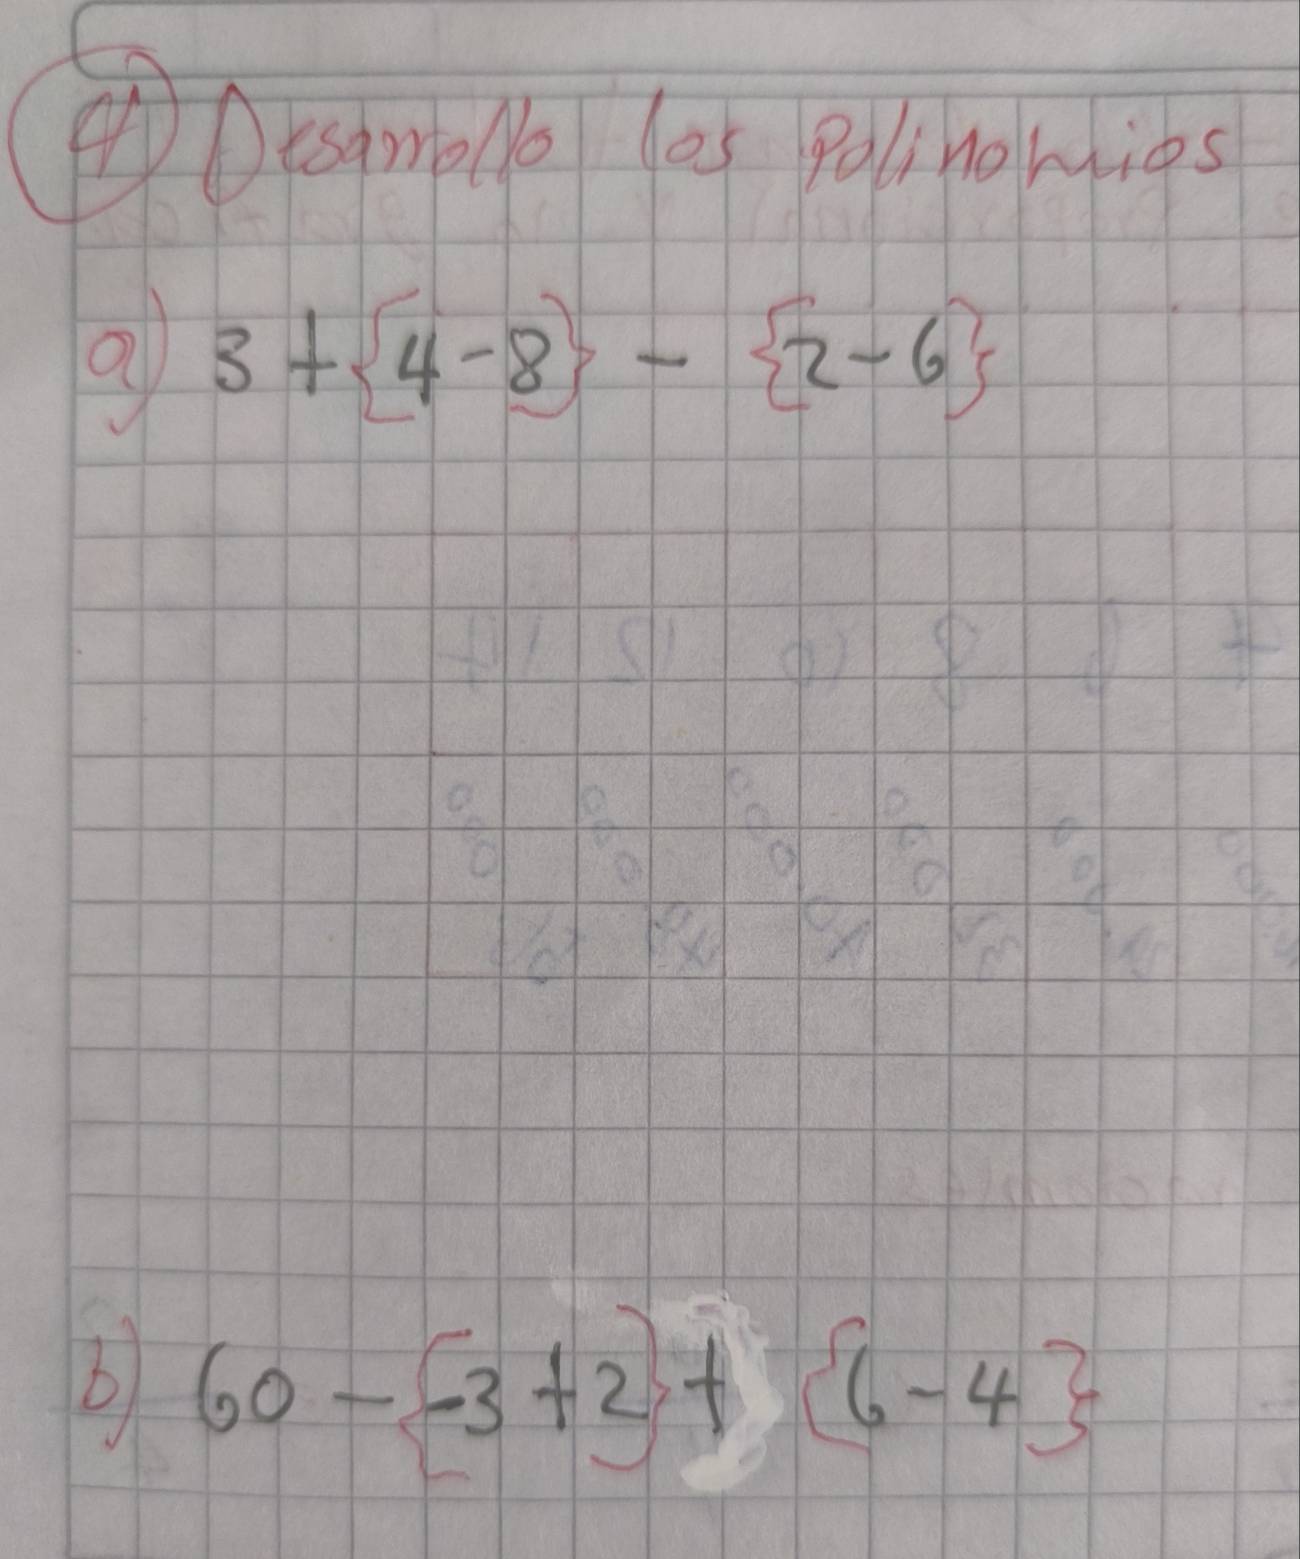 4) Desarrollo los Polinomios
a) 3 + {4 - 8} - {2 - 6}
b) 60 - {-3 + 2} + {6 - 4}